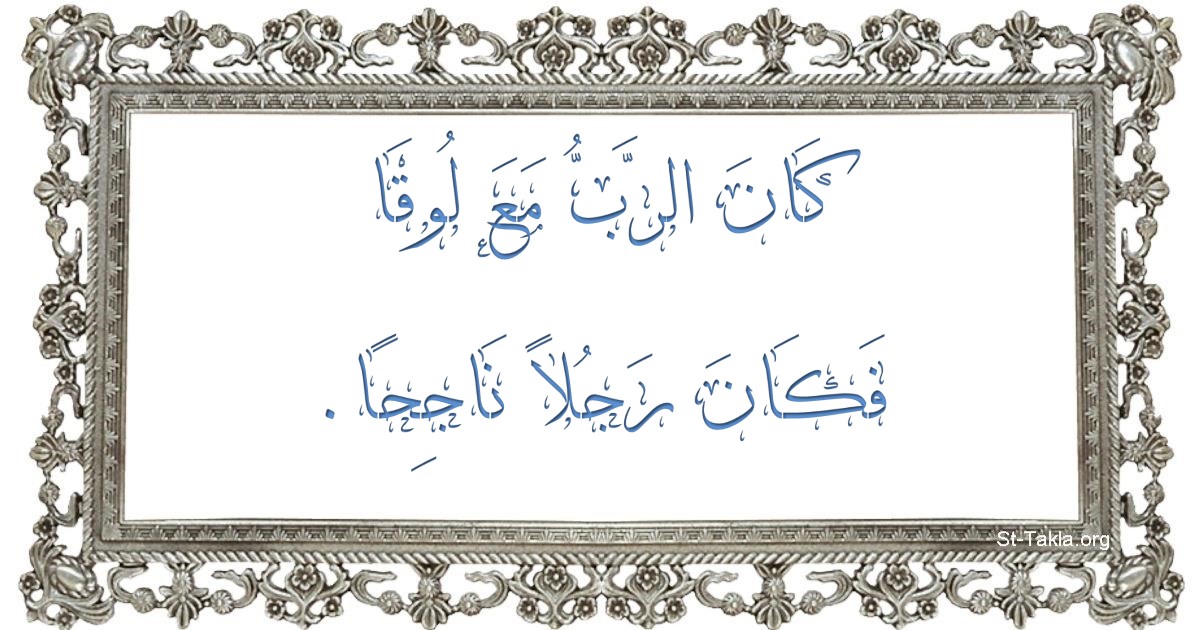 كَانَ الرَّبُّ مَعَ لُوقَا
فَكَانَ رَجُلاً نَاجِحًا .
St-Takla.org